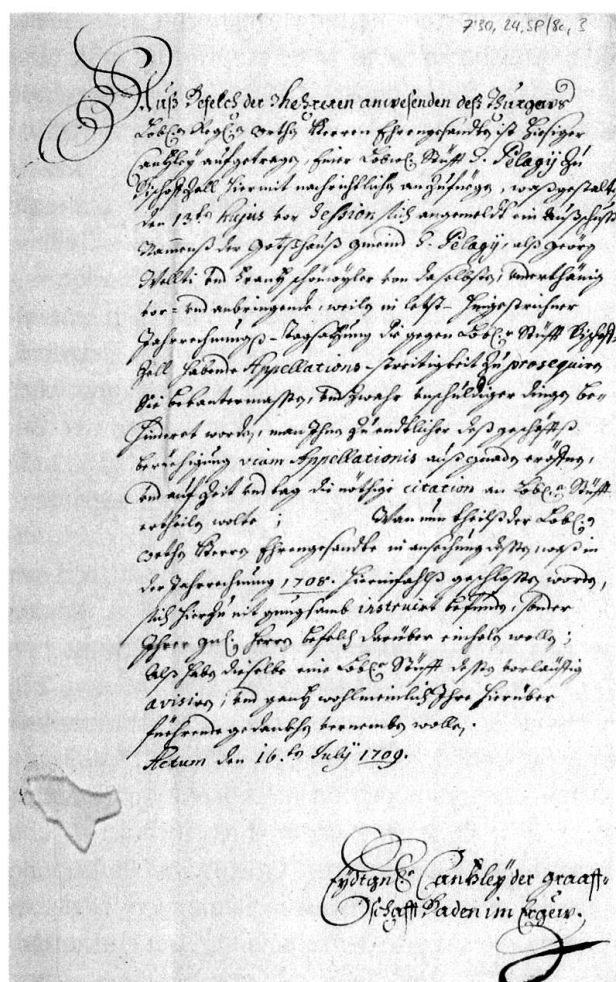 7'30, 24.SP/8c, 3
Auß Befelch der Hherren anwesenden deß Thurgeus
Lobl. Reg. Orthen Herren Ehrengesandten ist hiesiger
Cantzley aufgetragen, Einer Lobl. Stüfft S. Pelagij zu
Bischoffzell hiermit nachrichtlich anzufüegen, waßgestalten
den 13.ten hujus vor Session sich angemeldt ein Außschuß
Nammenß der Gottshauß gmeind S. Pelagij, alß Georg
und Frantz von daselbsten, underthänig
vor- und anbringende, weilen in letst-hingestrichner
Jahrrechnungs-Tagsatzung die gegen Lobl. Stüfft Bischoff-
zell habende Appellations-streitigkeit zu prosequiren
Sie bekantermassen, und zwahr unschuldiger dingen be-
hinderet worden, man Ihnen zu endtlicher deß geschäffts
beruehigung viam Appellationis auß gnaden eröffnen,
und auf Zeit und tag die nöthige citation an Lobl. Stüfft
ertheilen wolte; Wan nun theilß der Lobl.
Orthen Herren Ehrengesandte in ansechung dessen, waß in
der Jahrrechnung 1708. hierinfahlß geschlossen worden,
sich hierzu nit gnugsamb instruirt befinden, sonder
Ihrer gn. Herren befelch darüber einholen wollen;
Alß haben dieselbe eine Lobl. Stüfft dessen vorläuffig
avisiren, und gantz wohlmeinlich Ihre hierüber
füehrende gedanckhen vernemben wollen.
Actum den 16.ten Julij 1709.
Eydtgn. Cantzleÿ der Graaff-
schafft Baden im Ergeuw.